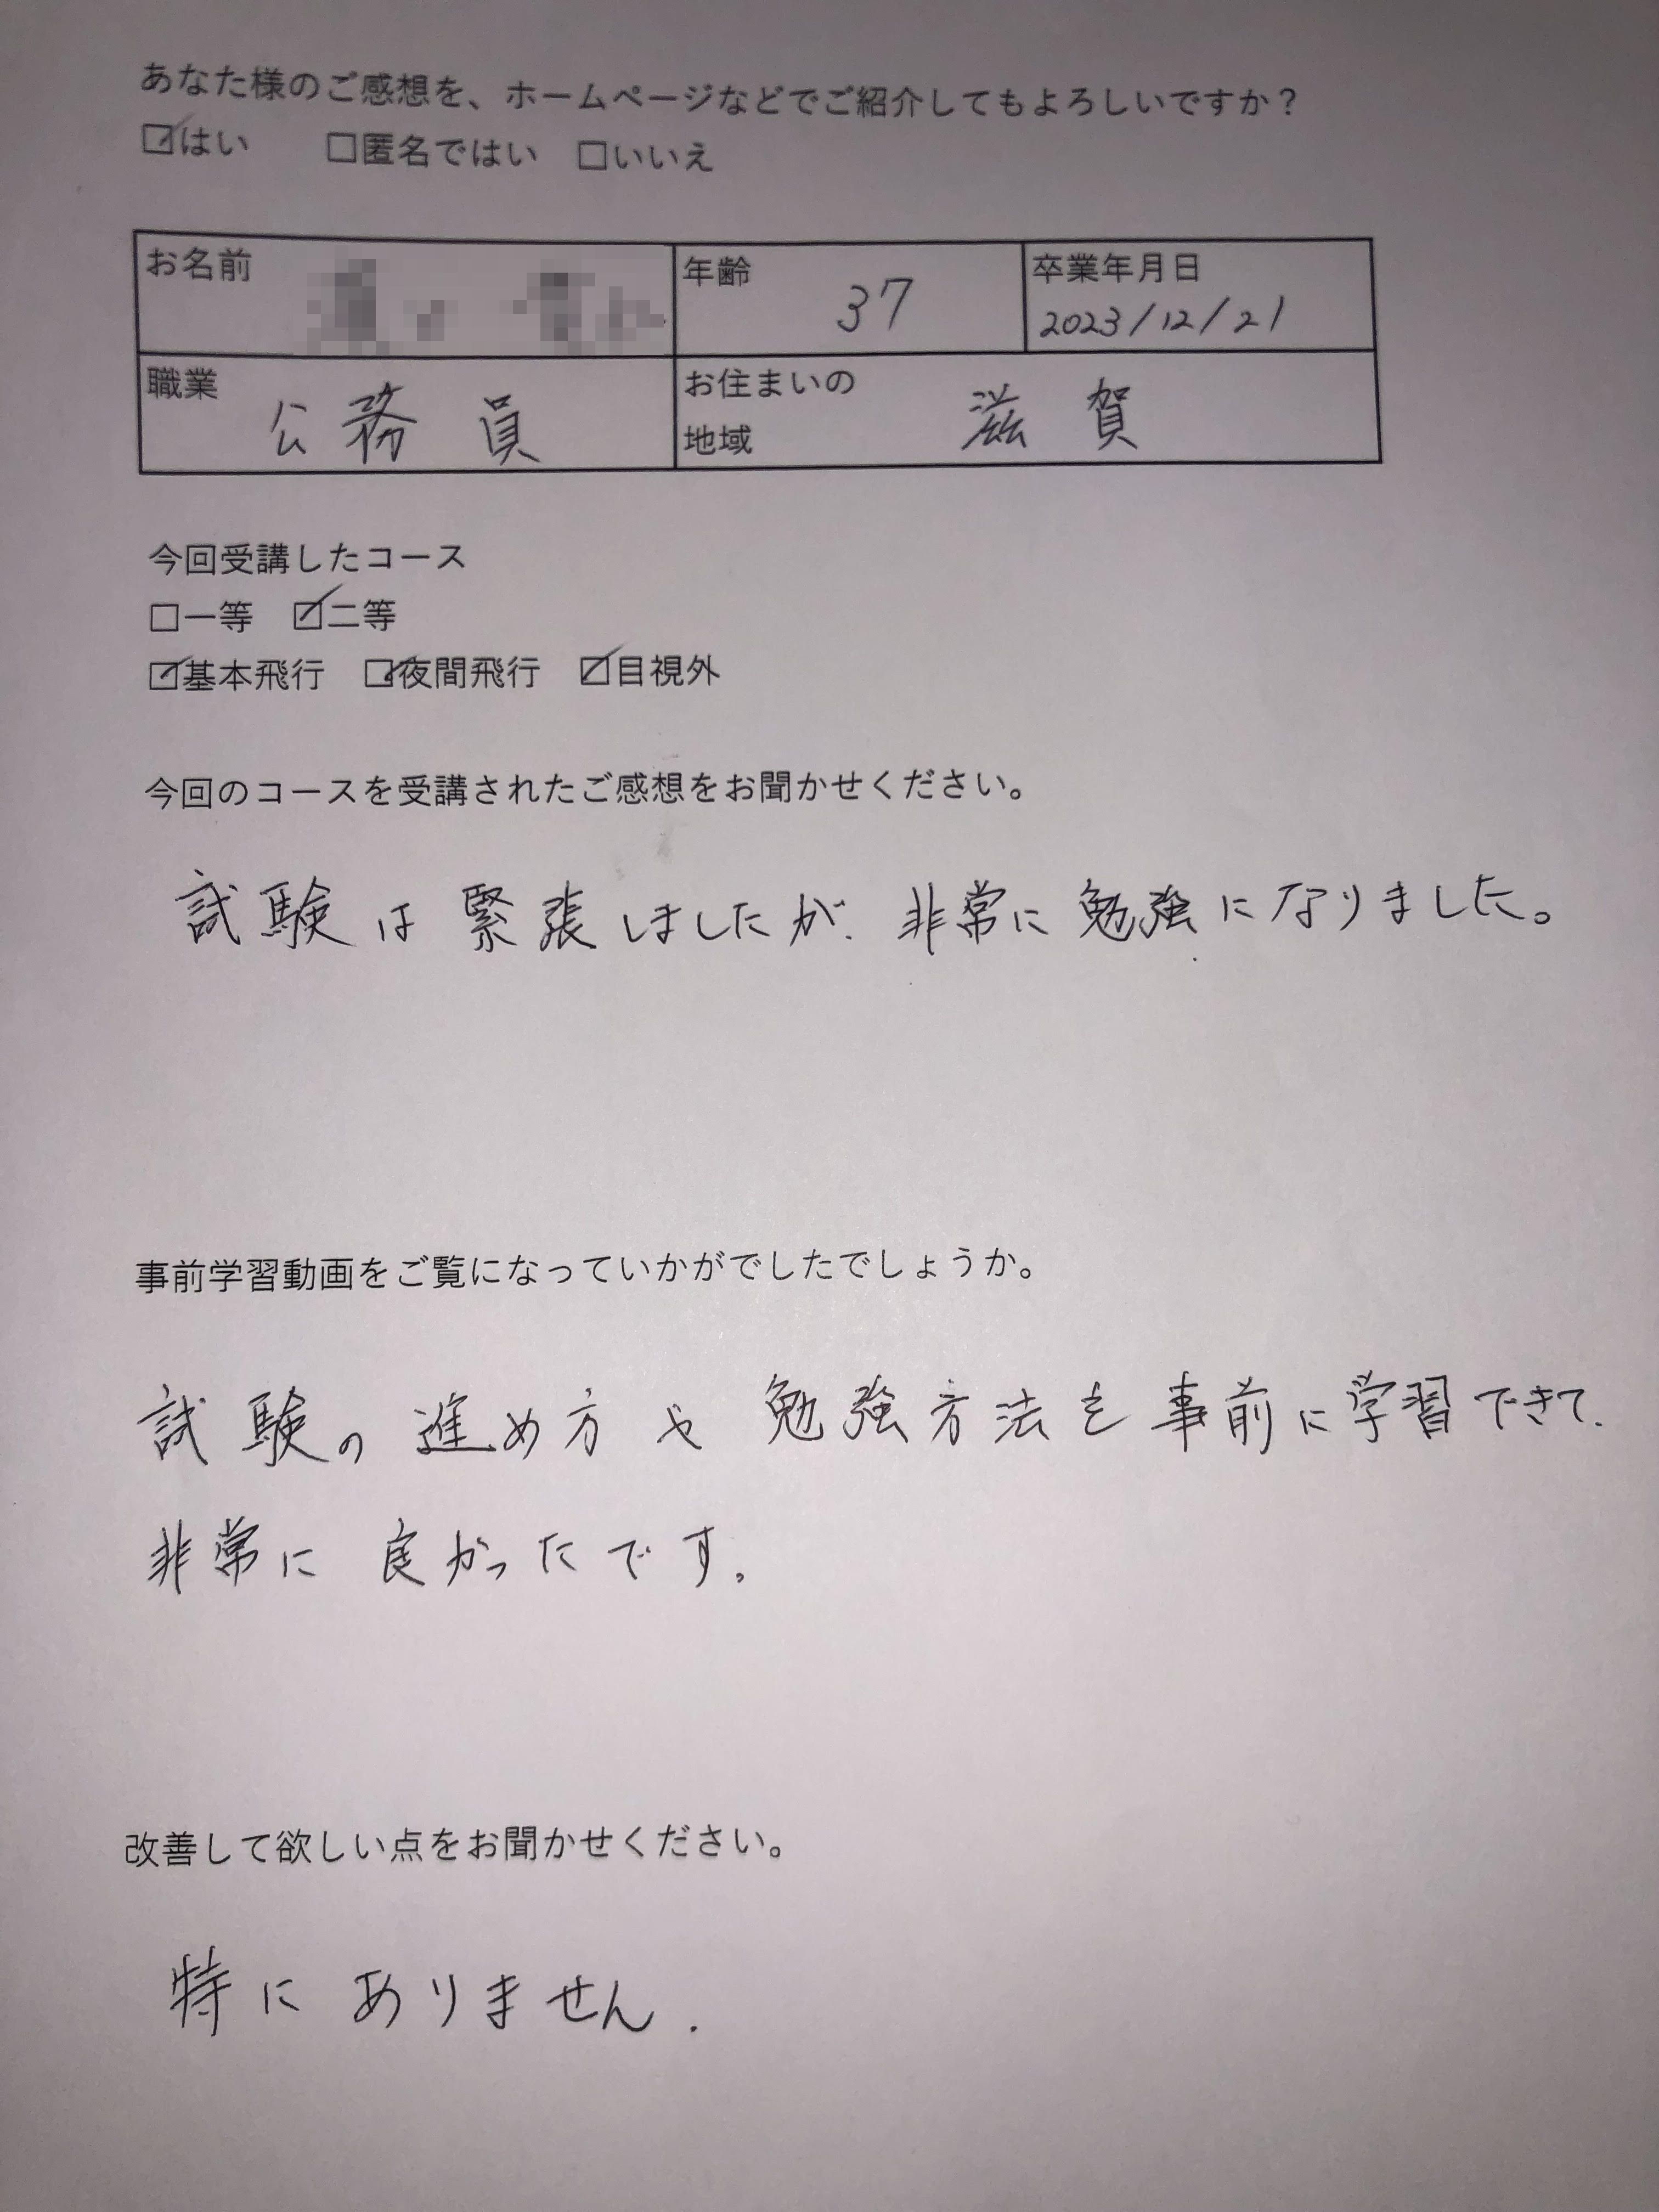 あなた様のご感想を、ホームページなどでご紹介してもよろしいですか？
☑はい　□匿名ではい　□いいえ
お名前
年齢 37
卒業年月日
2023/12/21
職業 公務員
お住まいの地域 滋賀
今回受講したコース
□一等　☑二等
☑基本飛行　☑夜間飛行　☑目視外
今回のコースを受講されたご感想をお聞かせください。
試験は緊張しましたが、非常に勉強になりました。
事前学習動画をご覧になっていかがでしたでしょうか。
試験の進め方や勉強方法を事前に学習できて、
非常に良かったです。
改善して欲しい点をお聞かせください。
特にありません.